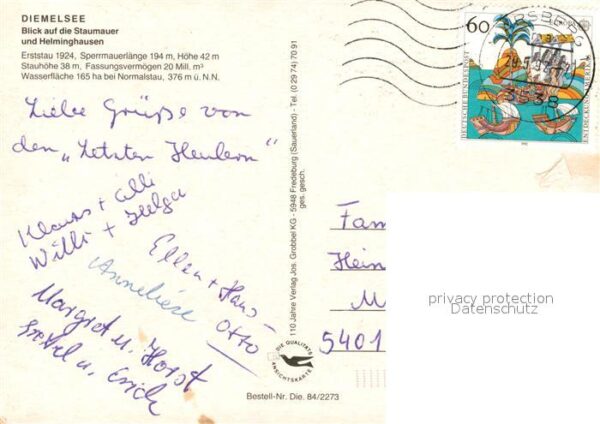 DIEMELSEE
Blick auf die Staumauer
und Helminghausen
Erststau 1924, Sperrmauerlänge 194 m, Höhe 42 m
Stauhöhe 38 m, Fassungsvermögen 20 Mill. m³
Wasserfläche 165 ha bei Normalstau, 376 m ü. N.N.
Liebe Grüße von
den „Letzten Heulern"
Klaus + Elli
Willi + Helga
Ellen + Hans-
Otto
Anneliese
Margret u. Horst
Gretel u. Erich
110 Jahre Verlag Jos. Grobbel KG - 5948 Fredeburg (Sauerland) - Tel. (0 29 74) 70 91
ges. gesch.
DIE QUALITÄTS
ANSICHTSKARTE
Bestell-Nr. Die. 84/2273
60
DEUTSCHE BUNDESPOST
3538
Fam
Hein
M
5401
privacy protection
Datenschutz